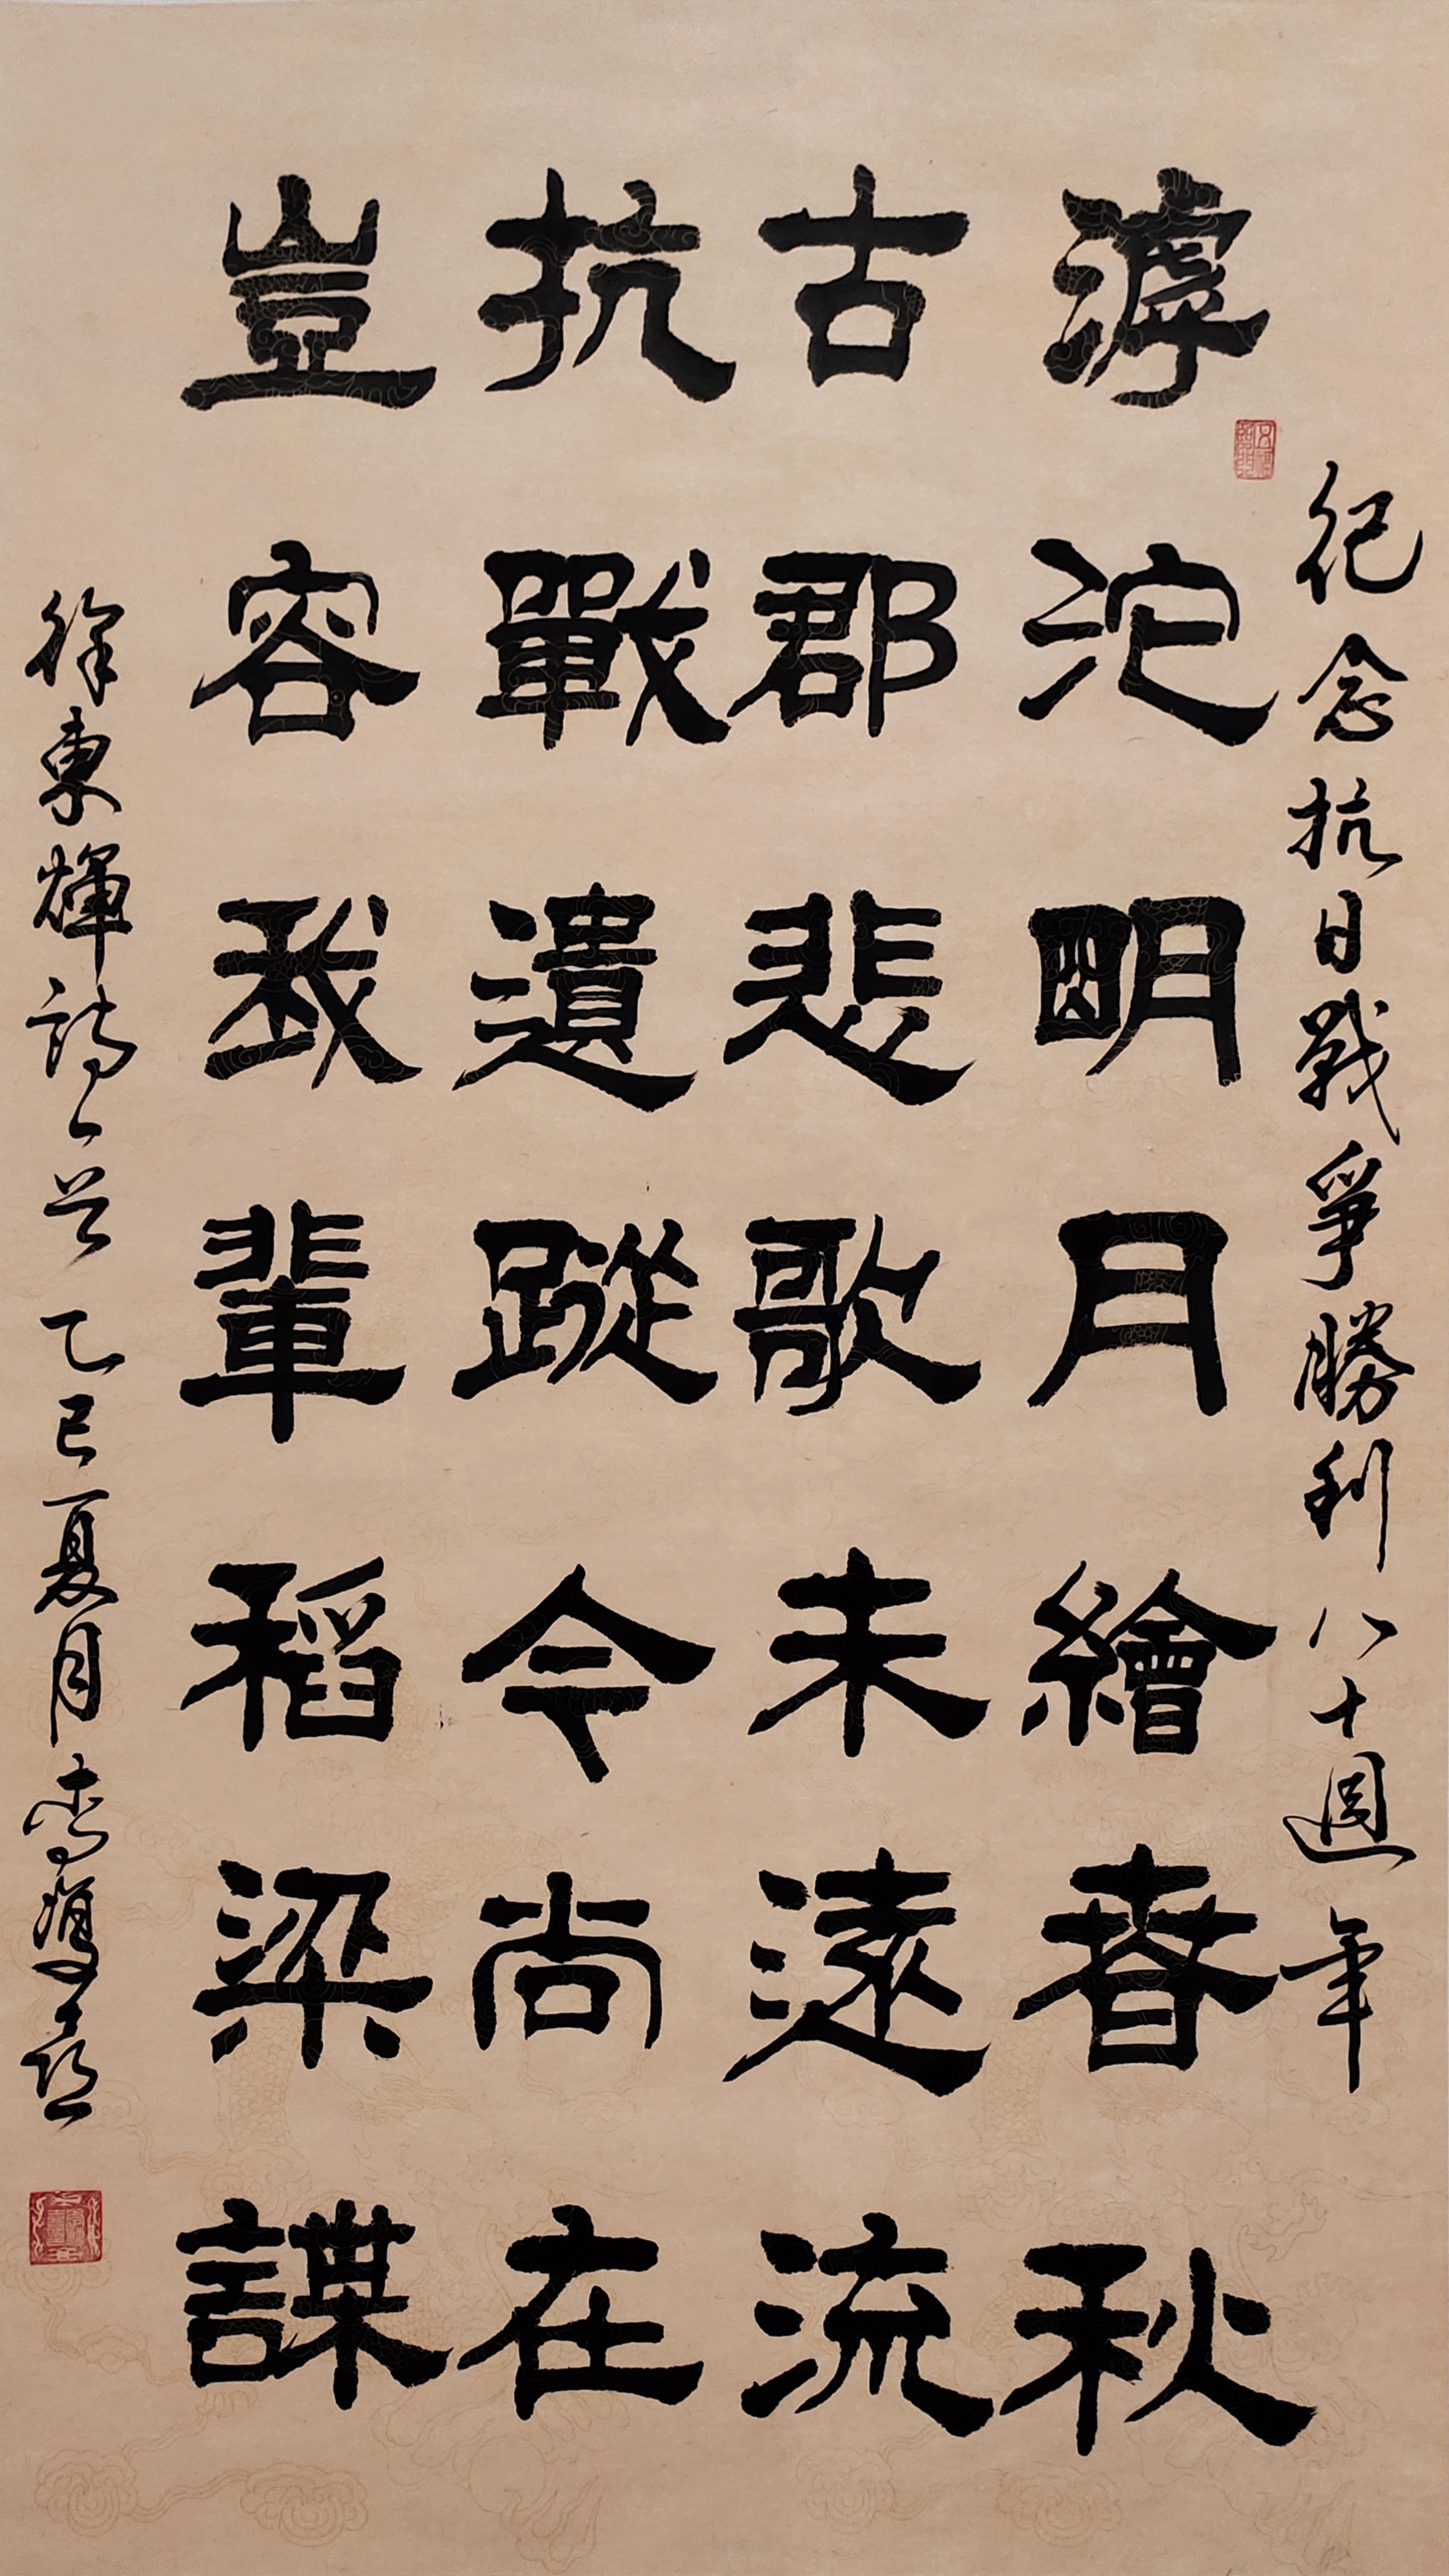 滹沱明月繪春秋
古郡悲歌未遠流
抗戰遺蹤今尚在
豈容我輩稻粱謀
紀念抗日戰爭勝利八十週年
徐東輝詩一首 乙巳夏月李